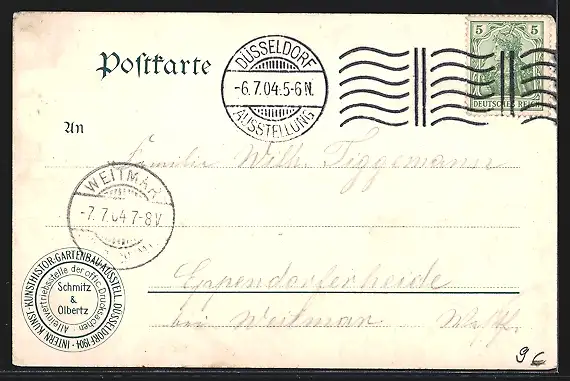 Postkarte
DÜSSELDORF
-6.7.04.5-6N.
AUSSTELLUNG
5 5
DEUTSCHES REICH
An
Familie Wilh. Tiggemann
WEITMAR
-7.7.04 7-8V.
INTERN. KUNST-KUNSTHISTOR.-GARTENBAU-AUSSTELL. DÜSSELDORF 1904
Alleinvertriebsstelle der offic. Drucksachen
Schmitz
&
Olbertz
Eppendorferheide
bei Weitmar Westf.
9